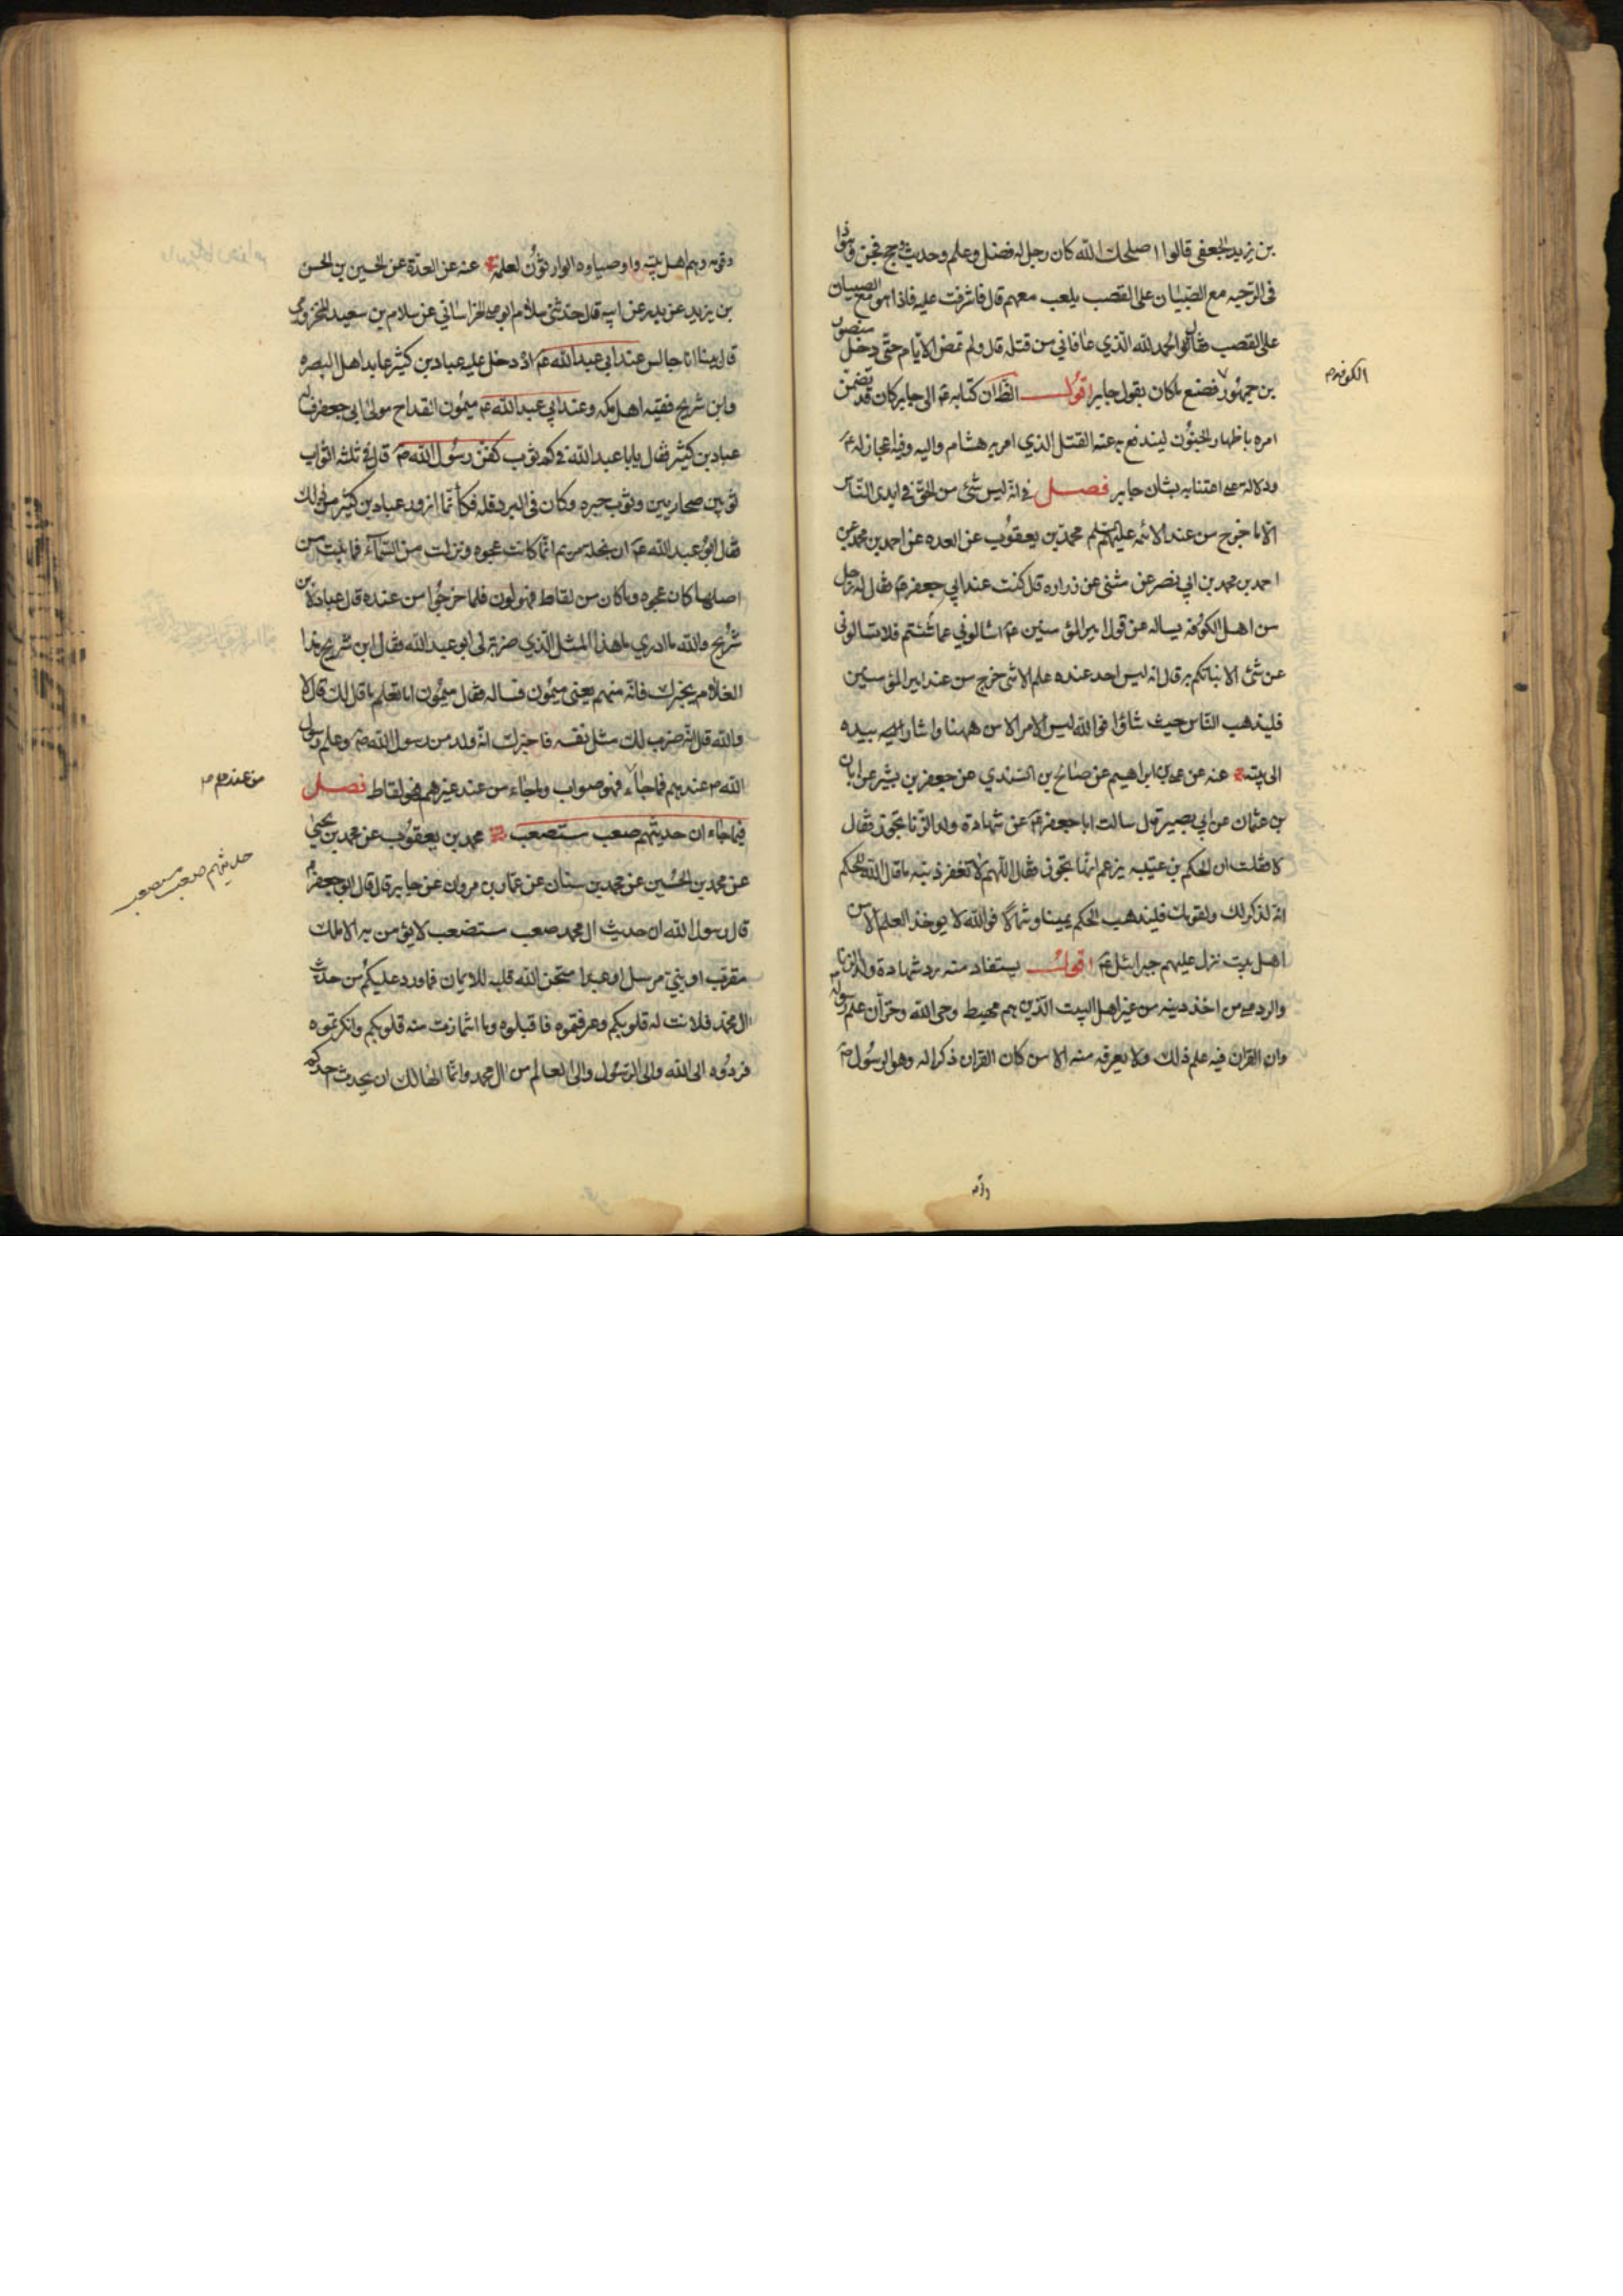 بن يزيد الجعفي قالوا اصلحك الله كان رجل له فضل وعلم وحديث وحج فجن وهوذا
في الرحبه مع الصبيان على القصب يلعب معهم قال فاشرف عليه فاذا هو مع الصبيان
على القصب فقال الحمد لله الذي عافاني من قتله قال ولم تمض الايام حتى دخل منصور
بن جمهور فصنع ما كان يقول جابر اقول الظ ان كتابه ع الى جابر كان قد تضمن
الكوفه م
امره باظهار الجنون ليندفع به عنه القتل الذي امر به هشام واليه وفيه اعجاز له ع
ودلاله على اعتنائه بشان جابر فصل في انه ليس شئ من الحق في ايدي الناس
الا ما خرج من عند الائمه عليهم محمد بن يعقوب عن العده عن احمد بن محمد عن
احمد بن محمد بن ابي نصر عن مثنى عن زراره قال كنت عند ابي جعفر ع فقال له رجل
من اهل الكوفه يساله عن قول امير المؤمنين ع اسالوني عما شئتم فلا تسالوني
عن شئ الا نباتكم به قال انه ليس احد عنده علم الا شئ خرج من عند امير المؤمنين
فليذهب الناس حيث شاؤا فوالله ليس الامر الا من ههنا واشار بيده
الى بيته عنه عن على بن ابراهيم عن صالح بن السندي عن جعفر بن بشير عن ابان
بن عثمان عن ابي بصير قال سالت ابا جعفر ع عن شهادة ولد الزنا تجوز فقال
لا فقلت ان الحكم بن عتيبه يزعم انها تجوز فقال اللهم لا تغفر ذنبه ما قال الله للحكم
انه لذكر لك ولقومك فليذهب الحكم يمينا وشمالا فوالله لا يوخذ العلم الا من
اهل بيت نزل عليهم جبرائيل ع اقول يستفاد منه رد شهادة ولد الزنا
والرد على من اخذ دينه من غير اهل البيت الذين هم محيط وحى الله وخزان علم رسوله
وان القران فيه علم ذلك ولا يعرفه منه الا من كان القران ذكرا له وهو الرسول ص
وقومه
وقومه وهم اهل بيته واوصياوه الوارثون لعلمه عنه عن العدة عن الحسين بن الحسن
بن يزيد عن بدر عن ابيه قال حدثني سلام ابو على الخراساني عن سلام بن سعيد المخزومي
قال بينا انا جالس عند ابي عبد الله ع اذ دخل عليه عباد بن كثير عابد اهل البصره
وابن شريح فقيه اهل مكه وعند ابي عبد الله ع ميمون القداح مولى ابي جعفر فساله
عباد بن كثير فقال يا ابا عبد الله في كم ثوب كفن رسول الله ص قال في ثلثه اثواب
ثوبين صحاريين وثوب حبره وكان في البرد قله فكانما ازور عباد بن كثير من ذلك
فقال ابو عبد الله ع ان نخله مريم انما كانت عجوه ونزلت من السماء فما نبت من
اصلها كان عجوه وما كان من لقاط فهو لون فلما خرجوا من عنده قال عباد لابن
شريح والله ما ادري ما هذا المثل الذي ضربه لى ابو عبد الله فقال ابن شريح هذا
الغلام يخبرك فانه منهم يعنى ميمون فساله فقال ميمون اما تعلم ما قال لك قال لا
والله قال انه ضرب لك مثل نفسه فاخبرك انه ولد من رسول الله ص وعلم رسول
الله ص عندهم فما جاء فهو صواب وما جاء من عند غيرهم فهو لقاط فصل
من عندهم م
فيما جاء ان حديثهم صعب مستصعب محمد بن يعقوب عن محمد بن يحيى
حديثهم صعب مستصعب
عن محمد بن الحسين عن محمد بن سنان عن عمار بن مروان عن جابر قال قال ابو جعفر ع
قال رسول الله ان حديث ال محمد صعب مستصعب لا يؤمن به الا ملك
مقرب او نبي مرسل او عبد امتحن الله قلبه للايمان فما ورد عليكم من حديث
ال محمد فلانت له قلوبكم وعرفتموه فاقبلوه وما اشمازت منه قلوبكم وانكرتموه
فردوه الى الله والى الرسول والى العالم من ال محمد وانما الهالك ان يحدث احدكم